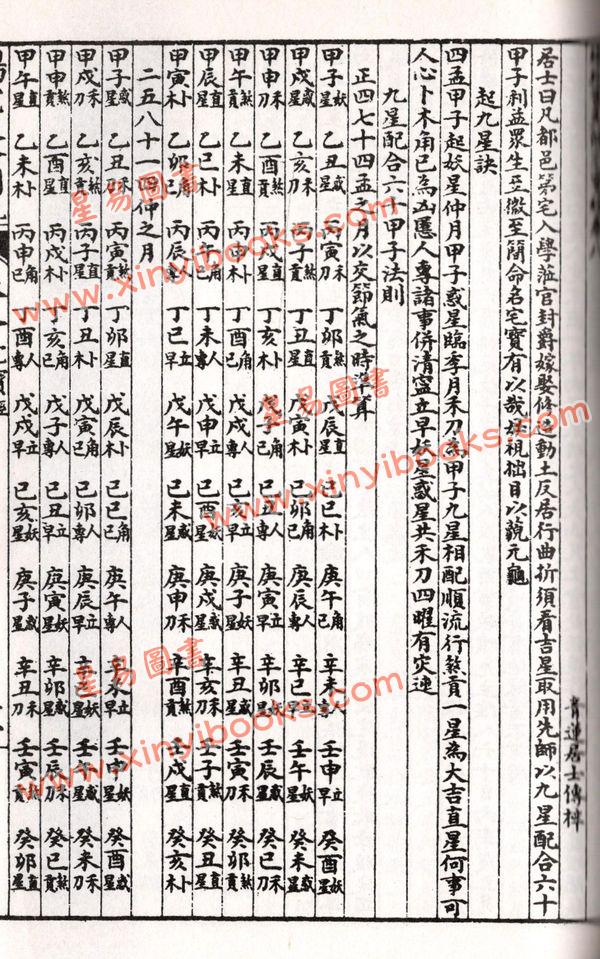 青蓮居士傳梓
居士曰凡都邑第宅入學蒞官封爵嫁娶修造動土反居行曲折須看吉星取用先師以九星配合六十
甲子利益眾生至微至簡命名宅寶有以哉視拙目以藐元龜
起九星訣
四孟甲子起妖星仲月甲子惑星臨季月禾刀為甲子九星相配順流行煞貢一星為大吉直星何事可
人心卜木角己為凶慝人專諸事併清寧立早妖星惑星共禾刀四曜有灾連
九星配合六十甲子法則
正四七十四孟之月以交節氣之時準算
甲子妖星 乙丑惑星 丙寅禾刀 丁卯煞貢 戊辰直星 己巳卜木 庚午角己 辛未人專 壬申立早 癸酉妖星
甲戌惑星 乙亥禾刀 丙子煞貢 丁丑直星 戊寅卜木 己卯角己 庚辰人專 辛巳立早 壬午妖星 癸未惑星
甲申禾刀 乙酉煞貢 丙戌直星 丁亥卜木 戊子角己 己丑人專 庚寅立早 辛卯妖星 壬辰惑星 癸巳禾刀
甲午煞貢 乙未直星 丙申卜木 丁酉角己 戊戌人專 己亥立早 庚子妖星 辛丑惑星 壬寅禾刀 癸卯煞貢
甲辰直星 乙巳卜木 丙午角己 丁未人專 戊申立早 己酉妖星 庚戌惑星 辛亥禾刀 壬子煞貢 癸丑直星
甲寅卜木 乙卯角己 丙辰人專 丁巳立早 戊午妖星 己未惑星 庚申禾刀 辛酉煞貢 壬戌直星 癸亥卜木
二五八十一四仲之月
甲子惑星 乙丑禾刀 丙寅煞貢 丁卯直星 戊辰卜木 己巳角己 庚午人專 辛未立早 壬申妖星 癸酉惑星
甲戌禾刀 乙亥煞貢 丙子直星 丁丑卜木 戊寅角己 己卯人專 庚辰立早 辛巳妖星 壬午惑星 癸未禾刀
甲申煞貢 乙酉直星 丙戌卜木 丁亥角己 戊子人專 己丑立早 庚寅妖星 辛卯惑星 壬辰禾刀 癸巳煞貢
甲午直星 乙未卜木 丙申角己 丁酉人專 戊戌立早 己亥妖星 庚子惑星 辛丑禾刀 壬寅煞貢 癸卯直星
星易圖書
www.xinyibooks.com
星易圖書
www.xinyibooks.com
星易圖書
www.xinyibooks.com